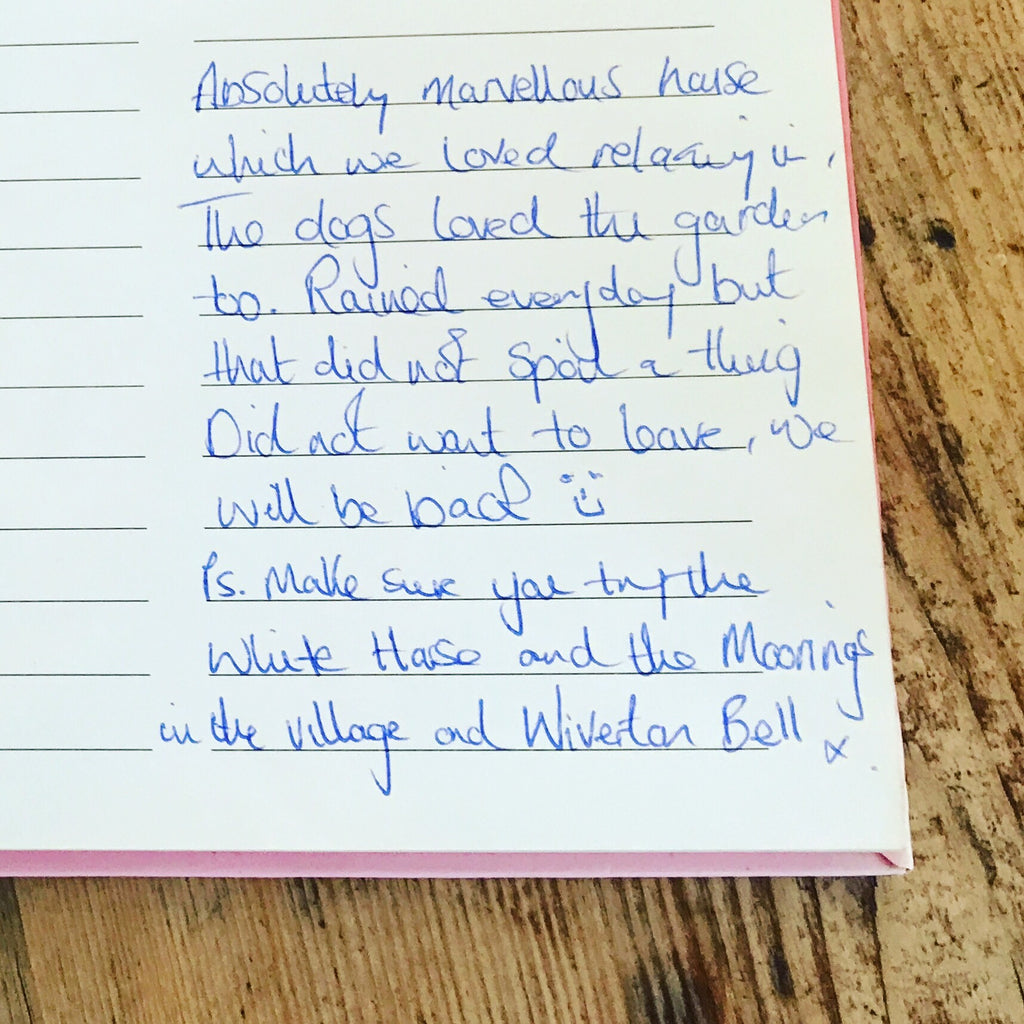 Absolutely marvellous house
which we loved relaxing in.
The dogs loved the garden
too. Rained everyday but
that did not spoil a thing
Did not want to leave, we
will be back :)
Ps. Make sure you try the
White Horse and the Moorings
in the village and Wiverton Bell x